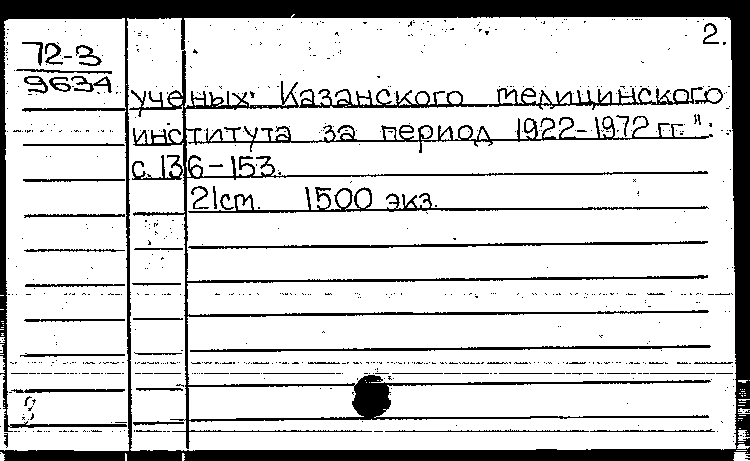 2.
72-3
9634
ученых Казанского медицинского
института за период 1922-1972 гг.":
с. 136-153.
21 ст. 1500 экз.